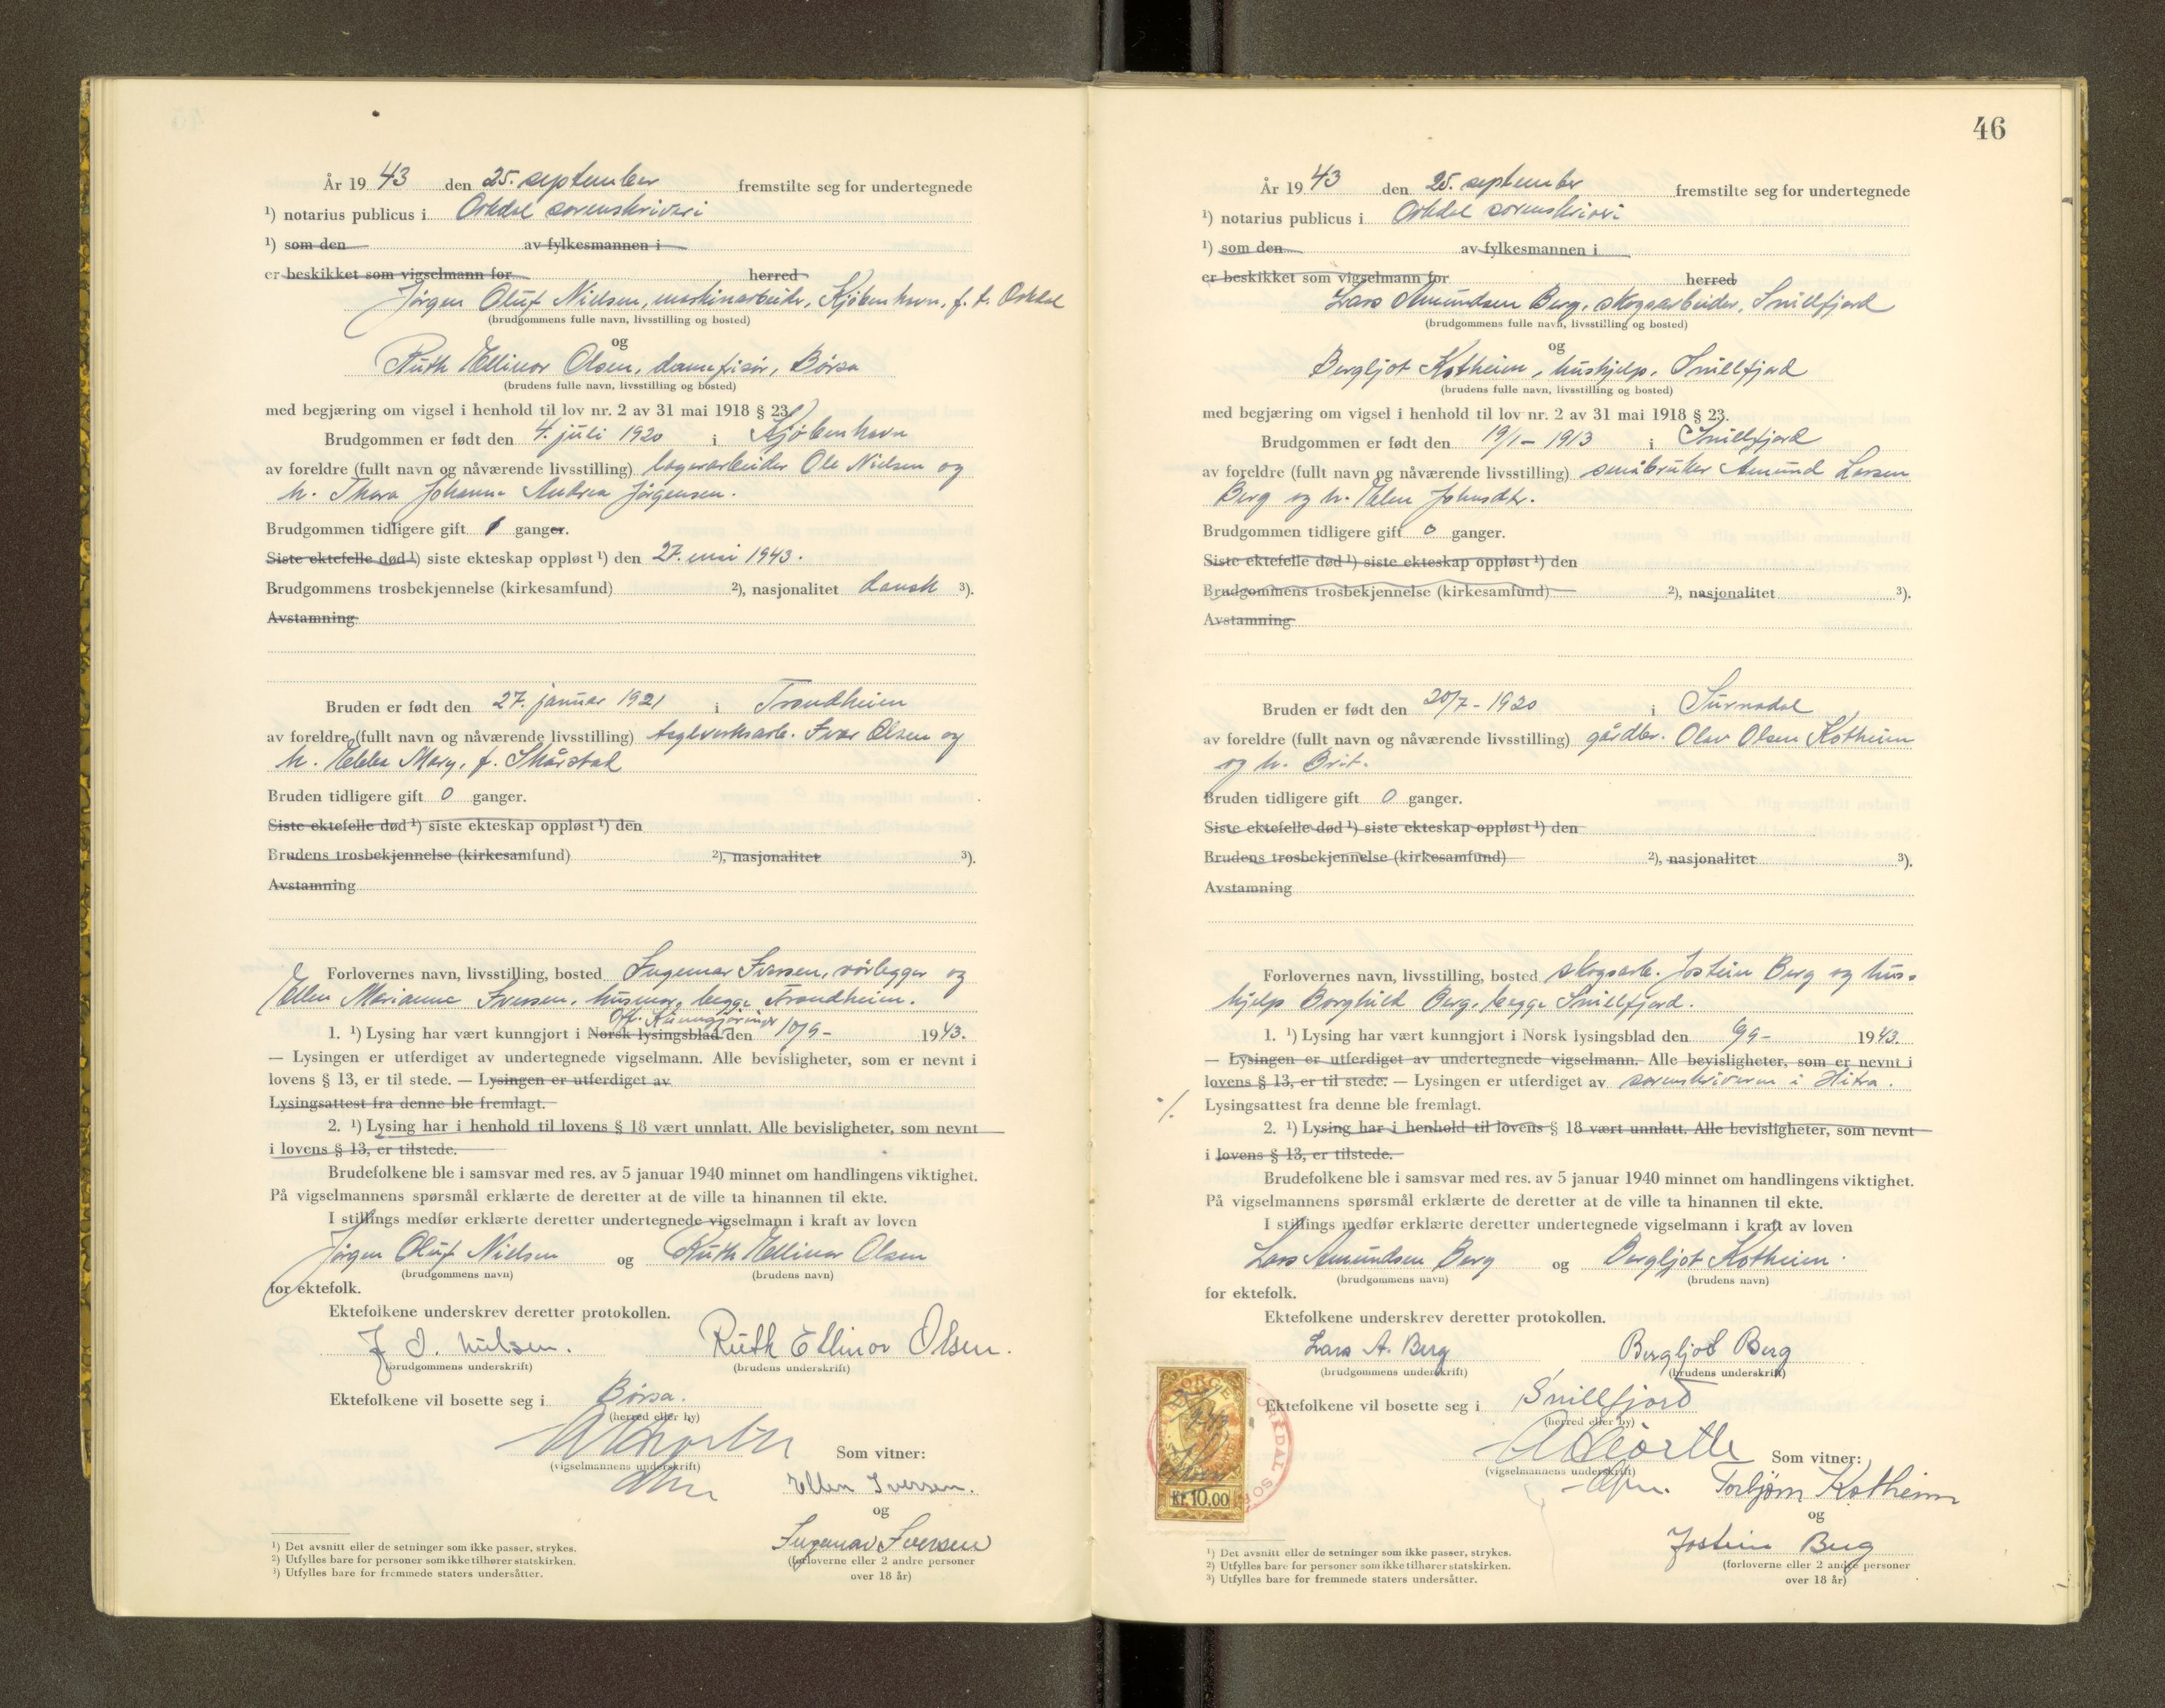 År 19 43 den 25. september fremstilte seg for undertegnede
¹) notarius publicus i Orkdal sorenskriveri
¹) som den av fylkesmannen i
er beskikket som vigselmann for herred
Jörgen Oluf Nielsen, maskinarbeider, Kjöbenhavn, f. t. Orkdal
(brudgommens fulle navn, livsstilling og bosted)
og
Ruth Ellinor Olsen, damefrisör, Börsa
(brudens fulle navn, livsstilling og bosted)
med begjæring om vigsel i henhold til lov nr. 2 av 31 mai 1918 § 23.
Brudgommen er født den 4. juli 1920 i Kjöbenhavn
av foreldre (fullt navn og nåværende livsstilling) lagerarbeider Ole Nielsen og
h. Thora Johanne Andrea Jörgensen.
Brudgommen tidligere gift 1 ganger.
Siste ektefelle død ¹) siste ekteskap oppløst ¹) den 27. mai 1943.
Brudgommens trosbekjennelse (kirkesamfund) ²), nasjonalitet dansk ³).
Avstamning
Bruden er født den 27. januar 1921 i Trondheim
av foreldre (fullt navn og nåværende livsstilling) teglverksarb. Ivar Olsen og
h. Ebba Mary, f. Skårstad
Bruden tidligere gift 0 ganger.
Siste ektefelle død ¹) siste ekteskap oppløst ¹) den
Brudens trosbekjennelse (kirkesamfund) ²), nasjonalitet ³).
Avstamning
Forlovernes navn, livsstilling, bosted Ingemar Iversen, rörlegger og
Ellen Marianne Iversen, husmor, begge Trondheim.
Off. Kunngjöringer
1. ¹) Lysing har vært kunngjort i Norsk lysingsblad den 10/9- 1943.
— Lysingen er utferdiget av undertegnede vigselmann. Alle bevisligheter, som er nevnt i
lovens § 13, er til stede. — Lysingen er utferdiget av
Lysingsattest fra denne ble fremlagt.
2. ¹) Lysing har i henhold til lovens § 18 vært unnlatt. Alle bevisligheter, som nevnt
i lovens § 13, er tilstede.
Brudefolkene ble i samsvar med res. av 5 januar 1940 minnet om handlingens viktighet.
På vigselmannens spørsmål erklærte de deretter at de ville ta hinannen til ekte.
I stillings medfør erklærte deretter undertegnede vigselmann i kraft av loven
Jörgen Oluf Nielsen og Ruth Ellinor Olsen
(brudgommens navn) (brudens navn)
for ektefolk.
Ektefolkene underskrev deretter protokollen.
J. O. Nielsen. Ruth Ellinor Olsen.
(brudgommens underskrift) (brudens underskrift)
Ektefolkene vil bosette seg i Börsa.
(herred eller by)
Som vitner:
(vigselmannens underskrift)
Ellen Iversen.
og
Ingemar Iversen
(forloverne eller 2 andre personer
over 18 år)
¹) Det avsnitt eller de setninger som ikke passer, strykes.
²) Utfylles bare for personer som ikke tilhører statskirken.
³) Utfylles bare for fremmede staters undersåtter.
46
År 19 43 den 25. september fremstilte seg for undertegnede
¹) notarius publicus i Orkdal sorenskriveri
¹) som den av fylkesmannen i
er beskikket som vigselmann for herred
Lars Amundsen Berg, skogsarbeider, Snillfjord
(brudgommens fulle navn, livsstilling og bosted)
og
Bergljot Kotheim, hushjelp, Snillfjord
(brudens fulle navn, livsstilling og bosted)
med begjæring om vigsel i henhold til lov nr. 2 av 31 mai 1918 § 23.
Brudgommen er født den 19/1- 1913 i Snillfjord
av foreldre (fullt navn og nåværende livsstilling) småbruker Amund Larsen
Berg og h. Elen Johnsdtr.
Brudgommen tidligere gift 0 ganger.
Siste ektefelle død ¹) siste ekteskap oppløst ¹) den
Brudgommens trosbekjennelse (kirkesamfund) ²), nasjonalitet ³).
Avstamning
Bruden er født den 20/7- 1920 i Surnadal
av foreldre (fullt navn og nåværende livsstilling) gårdbr. Olav Olsen Kotheim
og h. Brit.
Bruden tidligere gift 0 ganger.
Siste ektefelle død ¹) siste ekteskap oppløst ¹) den
Brudens trosbekjennelse (kirkesamfund) ²), nasjonalitet ³).
Avstamning
Forlovernes navn, livsstilling, bosted skogsarb. Jostein Berg og hus-
hjelp Borghild Berg, begge Snillfjord.
1. ¹) Lysing har vært kunngjort i Norsk lysingsblad den 1943.
— Lysingen er utferdiget av undertegnede vigselmann. Alle bevisligheter, som er nevnt i
lovens § 13, er til stede. — Lysingen er utferdiget av sorenskriveren i Hitra.
./. Lysingsattest fra denne ble fremlagt.
2. ¹) Lysing har i henhold til lovens § 18 vært unnlatt. Alle bevisligheter, som nevnt
i lovens § 13, er tilstede.
Brudefolkene ble i samsvar med res. av 5 januar 1940 minnet om handlingens viktighet.
På vigselmannens spørsmål erklærte de deretter at de ville ta hinannen til ekte.
I stillings medfør erklærte deretter undertegnede vigselmann i kraft av loven
Lars Amundsen Berg og Bergljot Kotheim.
(brudgommens navn) (brudens navn)
for ektefolk.
Ektefolkene underskrev deretter protokollen.
Lars A. Berg Bergljot Berg
(brudgommens underskrift) (brudens underskrift)
Ektefolkene vil bosette seg i Snillfjord
(herred eller by)
Som vitner:
(vigselmannens underskrift)
Torbjörn Kotheim
og
Jostein Berg
(forloverne eller 2 andre personer
over 18 år)
NORGE
Kr. 10,00
ORKDAL SO
¹) Det avsnitt eller de setninger som ikke passer, strykes.
²) Utfylles bare for personer som ikke tilhører statskirken.
³) Utfylles bare for fremmede staters undersåtter.